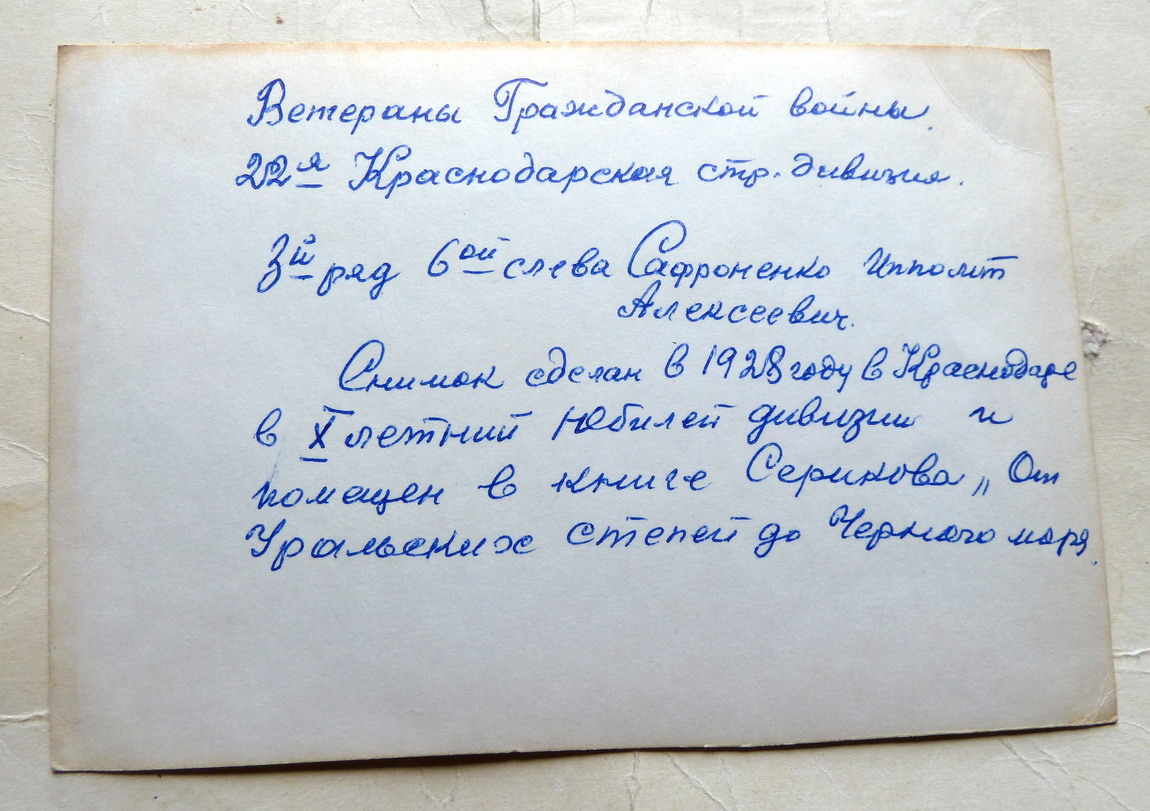 Ветераны Гражданской войны.
22я Краснодарская стр. дивизия.
3й ряд 6ой слева Сафроненко Ипполит
Алексеевич.
Снимок сделан в 1928 году в Краснодаре
в X летний юбилей дивизии и
помещен в книге Серикова „От
Уральских степей до Черного моря.